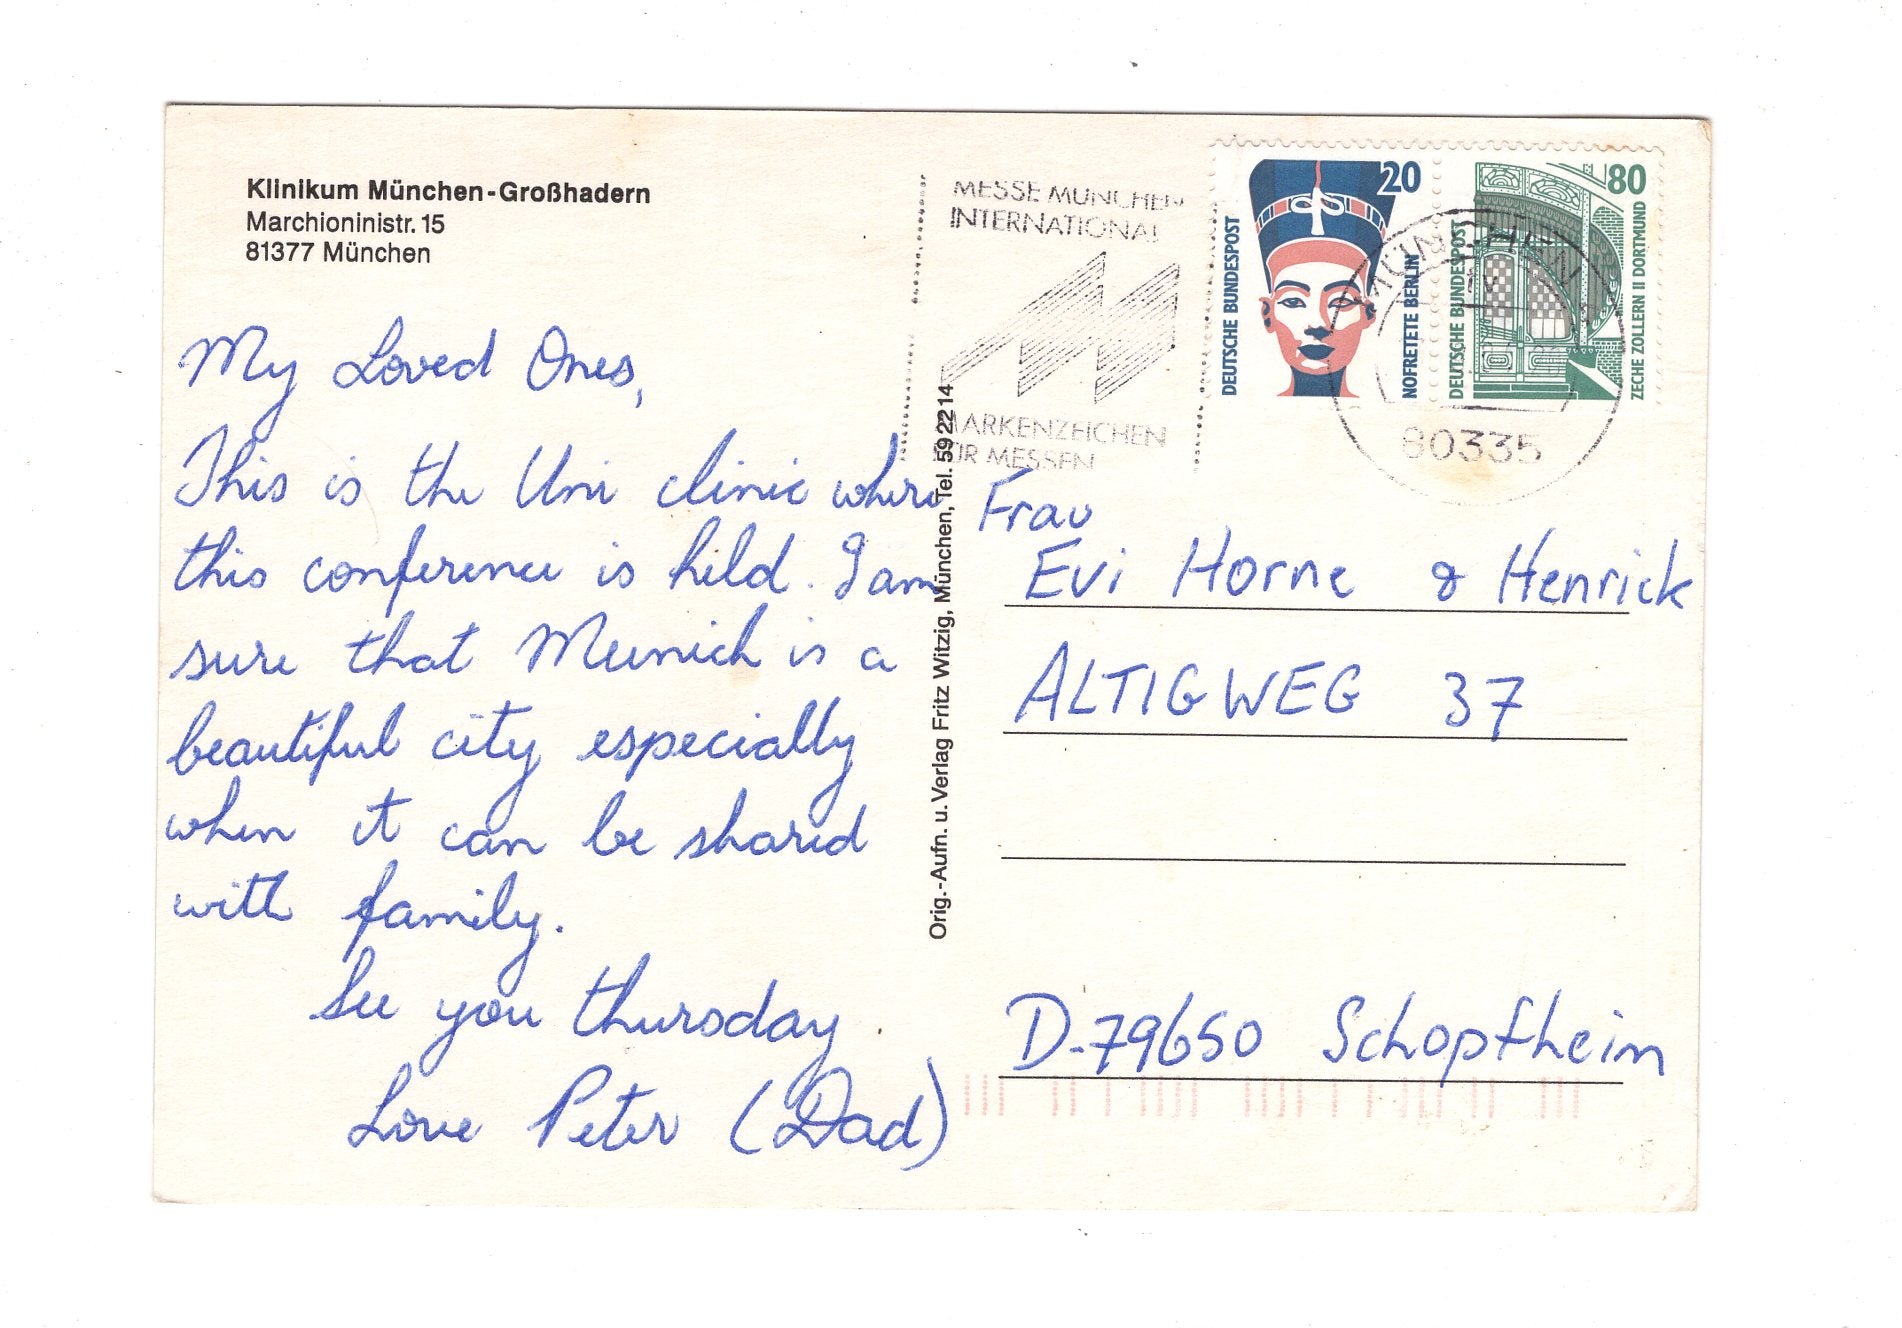 Klinikum München-Großhadern
Marchioninistr. 15
81377 München
My Loved Ones,
This is the Uni clinic where
this conference is held. I am
sure that Munich is a
beautiful city especially
when it can be shared
with family.
See you thursday.
Love Peter (Dad)
Orig.-Aufn. u. Verlag Fritz Witzig, München, Tel. 59 22 14
MESSE MÜNCHEN
INTERNATIONAL
MARKENZEICHEN
FÜR MESSEN
DEUTSCHE BUNDESPOST
20
NOFRETETE BERLIN
DEUTSCHE BUNDESPOST
80
ZECHE ZOLLERN II DORTMUND
MÜNCHEN
80335
Frau
Evi Horne & Henrick
ALTIGWEG 37
D-79650 Schopfheim